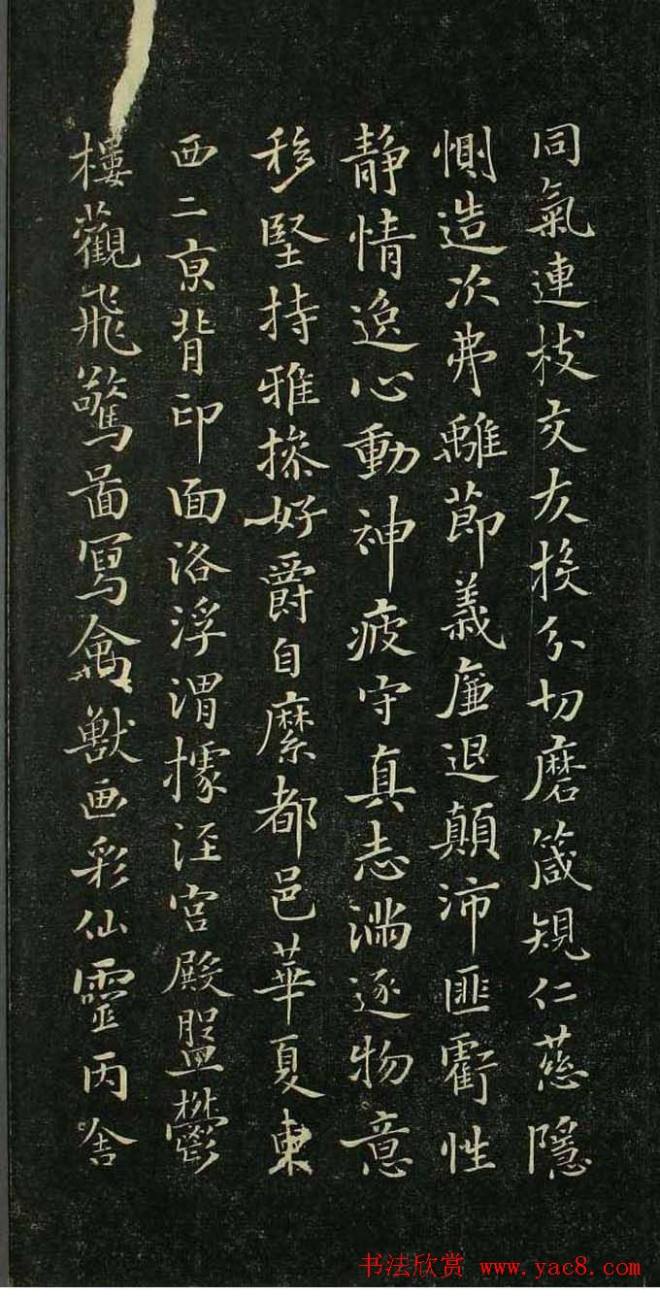 同氣連枝交友投分切磨箴規仁慈隱
惻造次弗離節義廉退顛沛匪虧性
靜情逸心動神疲守真志滿逐物意
移堅持雅操好爵自縻都邑華夏東
西二京背邙面洛浮渭據涇宮殿盤鬱
樓觀飛驚圖寫禽獸画彩仙靈丙舍
书法欣赏 www.yac8.com